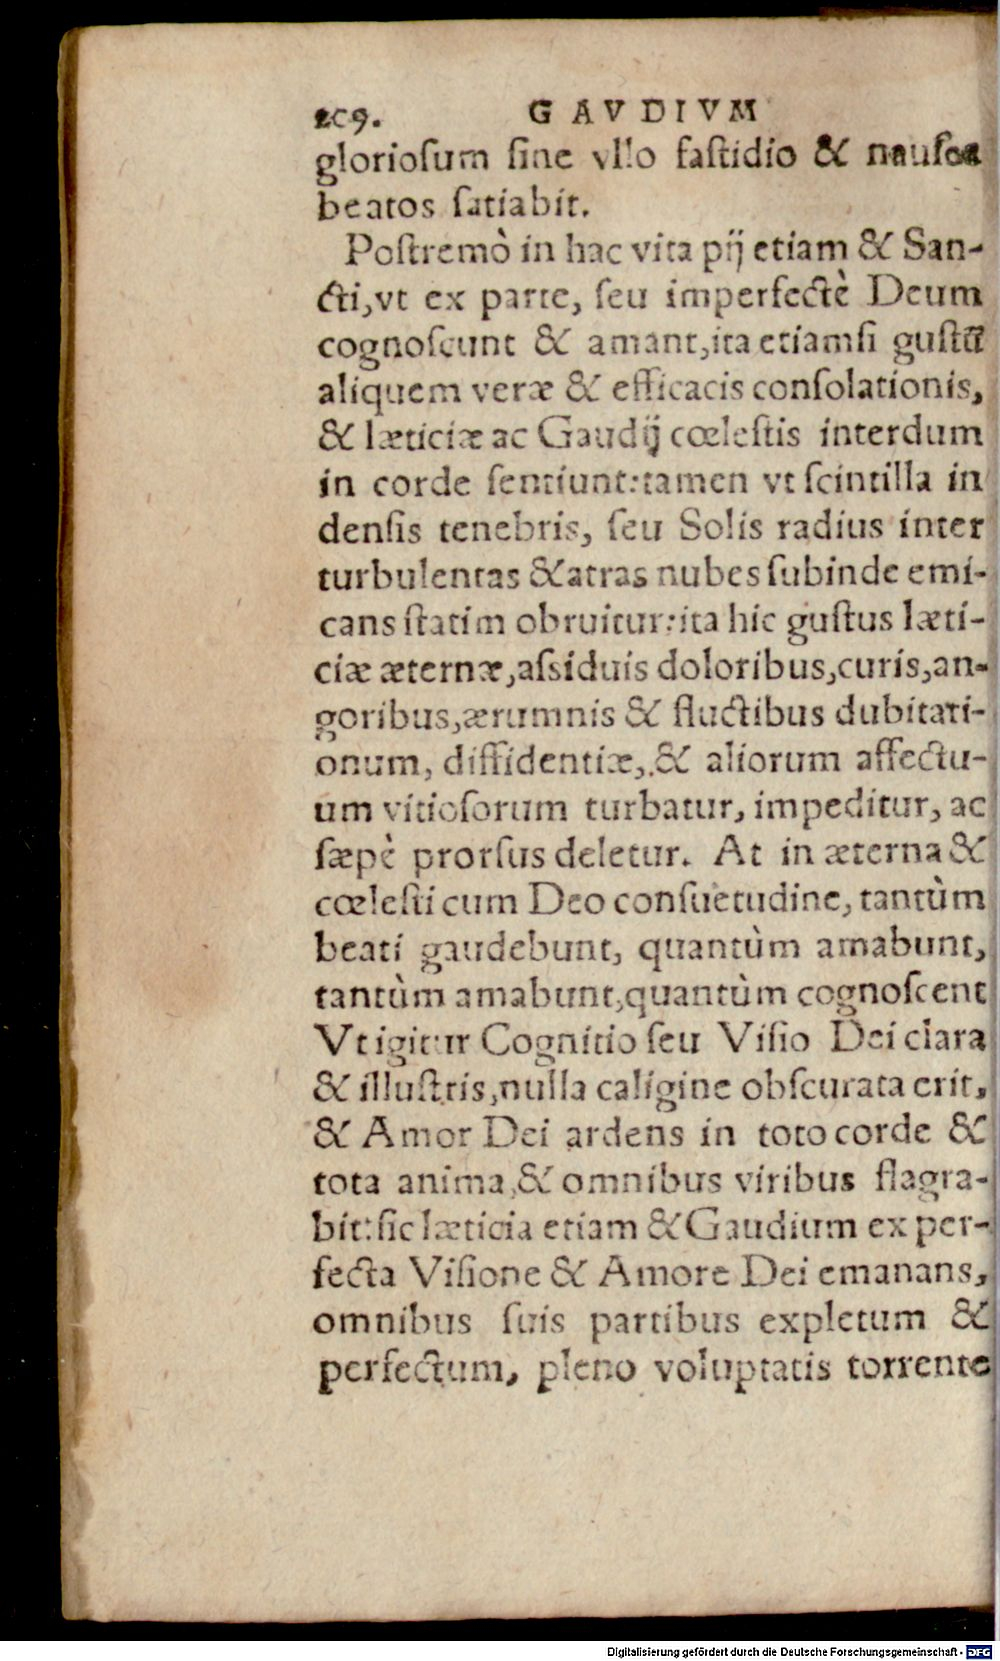 209. GAVDIVM
glorioſum ſine vllo faſtidio & nauſea
beatos ſatiabit.
Poſtremò in hac vita pij etiam & San-
cti, vt ex parte, ſeu imperfectè Deum
cognoſcunt & amant, ita etiamſi guſtū
aliquem veræ & efficacis conſolationis,
& læticiæ ac Gaudij cœleſtis interdum
in corde ſentiunt: tamen vt ſcintilla in
denſis tenebris, ſeu Solis radius inter
turbulentas & atras nubes ſubinde emi-
cans ſtatim obruitur: ita hic guſtus læti-
ciæ æternæ, aſsiduis doloribus, curis, an-
goribus, ærumnis & fluctibus dubitati-
onum, diffidentiæ, & aliorum affectu-
um vitioſorum turbatur, impeditur, ac
ſæpè prorſus deletur. At in æterna &
cœleſti cum Deo conſuetudine, tantùm
beati gaudebunt, quantùm amabunt,
tantùm amabunt, quantùm cognoſcent
Vt igitur Cognitio ſeu Viſio Dei clara
& illuſtris, nulla caligine obſcurata erit,
& Amor Dei ardens in toto corde &
tota anima, & omnibus viribus flagra-
bit: ſic læticia etiam & Gaudium ex per-
fecta Viſione & Amore Dei emanans,
omnibus ſuis partibus expletum &
perfectum, pleno voluptatis torrente
Digitalisierung gefördert durch die Deutsche Forschungsgemeinschaft - DFG